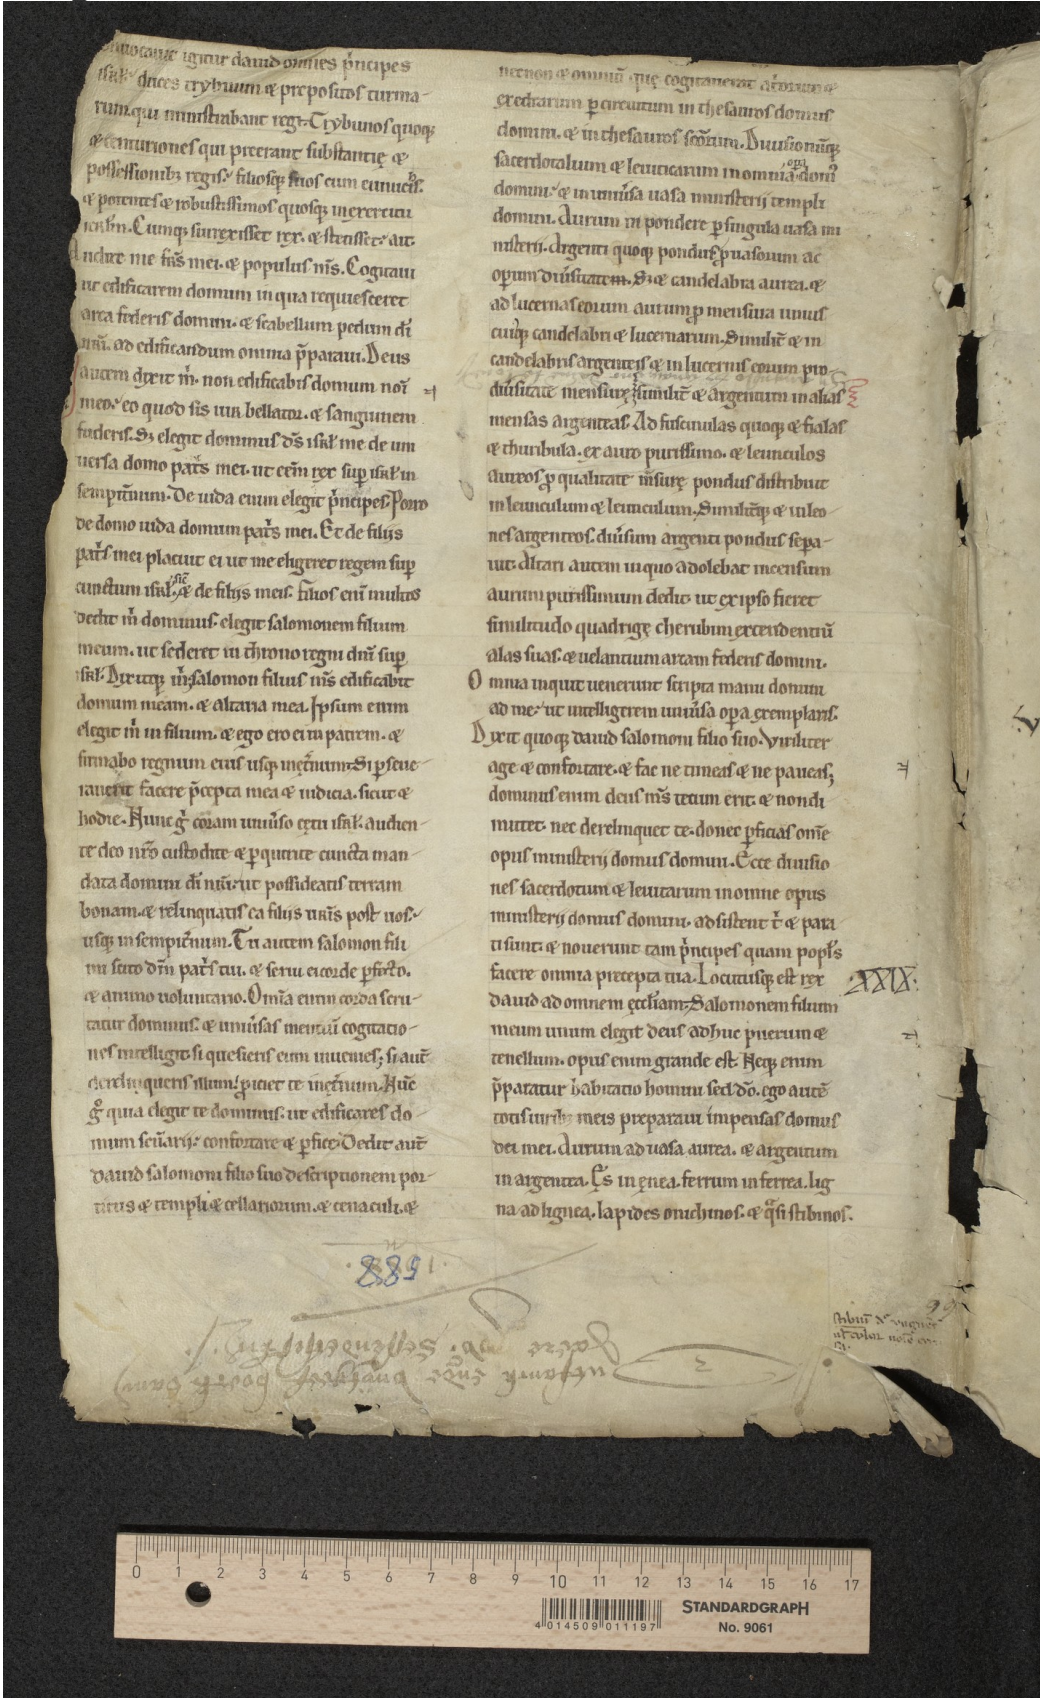 onuocauit igitur dauid omnes p̃ncipes
isrł. duces trybuum ⁊ prepositos turma-
rum. qui ministrabant regi. Trybunos quoque
⁊ centuriones qui preerant substantię ⁊
possessionib; regis. filiosq; suos cum eunuchis.
⁊ potentes ⁊ robustissimos quosq; in exercitu
ierłm. Cumq; surrexisset rex. ⁊ stetisset. ait.
Audite me fr̃s mei. ⁊ populus m̃s. Cogitaui
ut edificarem domum in qua requiesceret
arca federis domini. ⁊ scabellum pedum di̅
nr̃i. ad edificandum omnia p̃paraui. Deus
autem dixit m̃. non edificabis domum noi̅
meo. eo quod sis uir bellator. ⁊ sanguinem
fuderis. Sȝ elegit dominus ds̅ isrł me de uni
uersa domo patr̃s mei. ut eem̅ rex sup isrł in
sempit̃num. De iuda enim elegit p̃ncipes. Porro
de domo iuda domum patr̃s mei. Et de filijs
patr̃s mei placuit ei ut me eligeret regem sup
cunctum isrł. sic̅ ⁊ de filijs meis. Filios eni̅ multos
dedit m̃ dominus. elegit salomonem filium
meum. ut sederet in throno regni dni̅ sup
isrł. Dixitq; m̃. salomon filius m̃s edificabit
domum meam. ⁊ altaria mea. Ipsum enim
elegit m̃ in filium. ⁊ ego ero ei in patrem. ⁊
firmabo regnum eius usq; inęt̃num. Si pseue-
rauerit facere p̃cepta mea ⁊ iudicia. sicut ⁊
hodie. Nunc g̃ coram uniũso cętu isrł. audien-
te deo nr̃o custodite ⁊ pquirite cuncta man-
data domini di̅ nr̃i. ut possideatis terram
bonam. ⁊ relinquatis ea filijs ur̃is post uos.
usq; in sempit̃num. Tu autem salomon fili
mi scito dm̅ patr̃s tui. ⁊ serui ei corde pfecto.
⁊ animo uoluntario. Omi̅a enim corda scru-
tatur dominus. ⁊ uniũsas mentiu̅ cogitatio-
nes intelligit. si quesieris eum inuenies; si aut̅
dereliqueris illum. piciet te inęt̃num. Nu̅c
g̊ quia elegit te dominus. ut edificares do-
mum scu̅arij. confortare ⁊ pfice. Dedit aut̅
dauid salomoni filio suo descriptionem por-
ticus ⁊ templi ⁊ cellariorum. ⁊ cenaculi. ⁊
necnon ⁊ omniu̅ quę cogitauerat atriorum ⁊
exedrarum p circuitum in thesauros domus
domini. ⁊ in thesauros sco̅rum. Diuisionu̅q;
sacerdotalium ⁊ leuiticarum in omnia opa dom'
domini. ⁊ in uniũsa uasa ministerij templi
domini. Aurum in pondere p singula uasa mi
nisterij. Argenti quoq; pondus p uasorum ac
operum diũsitatem. Sȝ ⁊ candelabra aurea. ⁊
ad lucernas eorum aurum p mensura unius
cuiq; candelabri ⁊ lucernarum. Similit̃ ⁊ in
candelabris argenteis ⁊ in lucernis eorum pro-
diũsitate mensurę. similit̃ ⁊ argentum in alias
mensas argenteas. Ad fuscinulas quoq; ⁊ fialas
⁊ thuribula. ex auro purissimo. ⁊ leunculos
aureos p qualitate m̅surę pondus distribuit
in leunculum ⁊ leunculum. Similit̃q; ⁊ in leo-
nes argenteos. diũsum argenti pondus sepa-
uit. Altari autem in quo adolebat incensum
aurum purissimum dedit. ut ex ipso fieret
similitudo quadrigę cherubim extendentiu̅
alas suas. ⁊ uelantium arcam federis domini.
Omnia inquit uenerunt scripta manu domini
ad me. ut intelligerem uniũsa opa exemplaris.
Dixit quoq; dauid salomoni filio suo. Viriliter
age ⁊ confortare. ⁊ fac ne timeas ⁊ ne paueas;
dominus enim deus m̃s tecum erit. ⁊ non di
mittet. nec derelinquet te. donec pficias om̅e
opus ministerij domus domini. Ecce diuisio
nes sacerdotum ⁊ leuitarum in omne opus
ministerij domus domini. adsistent t̃ ⁊ para
ti sunt. ⁊ nouerunt tam p̃ncipes quam popls
facere omnia precepta tua. Locutusq; est rex
XXIX.
dauid ad omnem ęccłiam. Salomonem filium
meum unum elegit deus adhuc puerum ⁊
tenellum. opus enim grande est. Neq; enim
p̃paratur habitatio homini sed do̅. ego aute̅
totis uirib; meis preparaui impensas domus
dei mei. Aurum ad uasa aurea. ⁊ argentum
in argentea. Ęs in ęnea. ferrum in ferrea. lig
na ad lignea. lapides onichinos. ⁊ q̃si stibinos.
588
99
0 1 2 3 4 5 6 7 8 9 10 11 12 13 14 15 16 17
4 014509 011197
STANDARDGRAPH
No. 9061